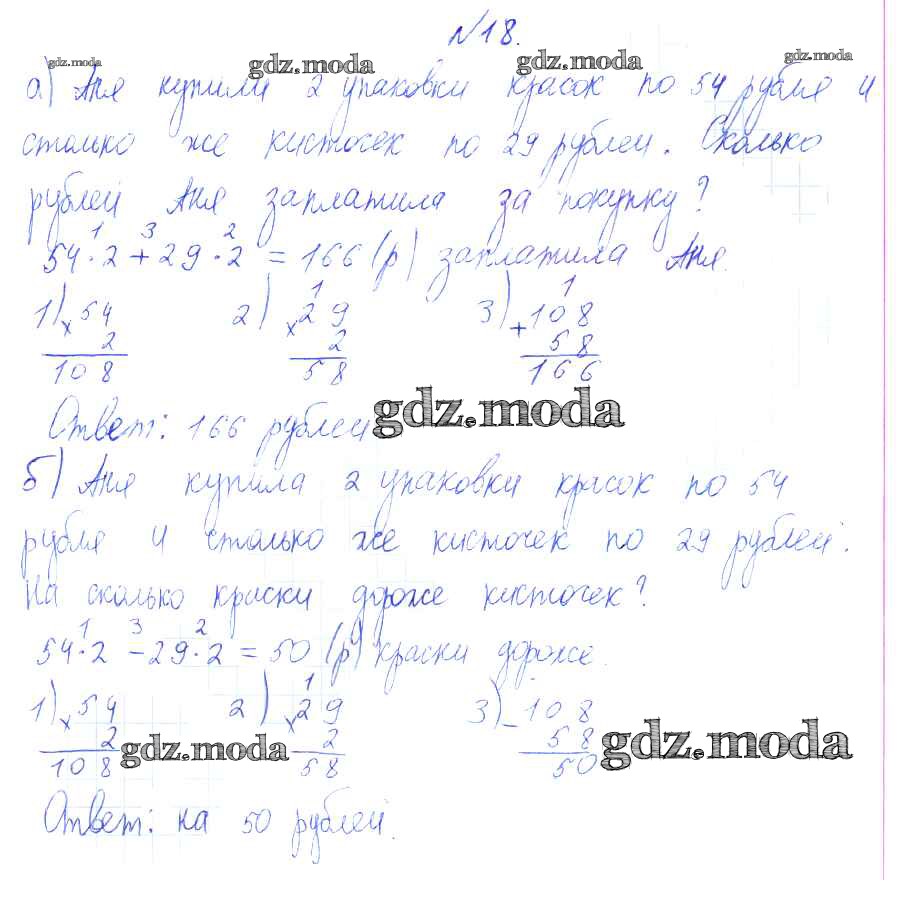 №18.
gdz.moda gdz.moda gdz.moda gdz.moda
а) Аня купили 2 упаковки красок по 54 рубля и
столько же кисточек по 29 рублей. Сколько
рублей Аня заплатила за покупку?
1 3 2
54·2+29·2=166 (р) заплатила Аня.
1) ×54 2) ×29 3) +108
1 1
2 2 58
108 58 166
Ответ: 166 рублей gdz.moda
б) Аня купила 2 упаковки красок по 54
рубля и столько же кисточек по 29 рублей.
На сколько краски дороже кисточек?
1 3 2
54·2-29·2=50 (р) краски дороже.
1) ×54 2) ×29 3) -108
1
2 2 58
108 58 50
gdz.moda gdz.moda
Ответ: на 50 рублей.